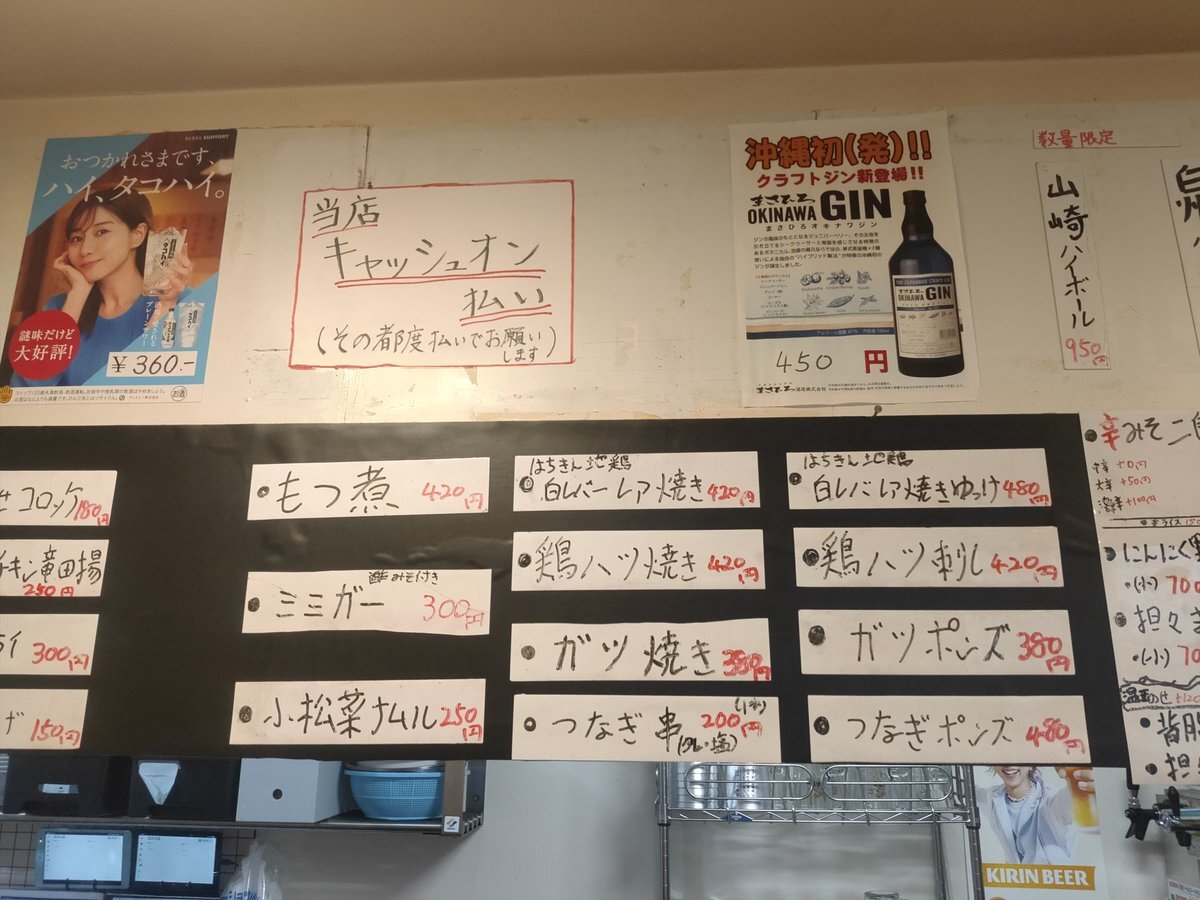 SUNTORY
おつかれさまです、
ハイ、タコハイ。
謎味だけど
大好評!
¥360.-
お酒
当店
キャッシュオン
払い
(その都度払いでお願い
します)
沖縄初(発)!!
クラフトジン新登場!!
まさひろ
OKINAWA GIN
まさひろオキナワジン
OKINAWA GIN
アルコール度数 47%
450 円
数量限定
山崎ハイボール
950円
コロッケ 180円
チキン竜田揚
250円
300円
150円
もつ煮 420円
酢みそ付き
ミミガー 300円
小松菜ナムル 250円
はちきん地鶏
白レバーレア焼き 420円
鶏ハツ焼き 420円
ガツ焼き 380円
つなぎ串 200円
(タレ・塩)
はちきん地鶏
白レバレア焼きゆっけ 480円
鶏ハツ刺し 420円
ガツポンズ 380円
つなぎポンズ 480円
辛みそ二
+0円
+50円
+100円
にんにく
(小) 70
担々
(小) 70
+120
背脂
担
KIRIN BEER